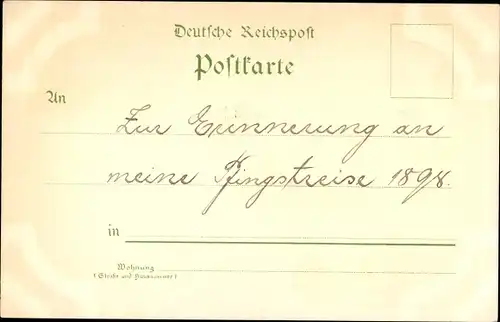 Deutsche Reichspost
Postkarte
An
Zur Erinnerung an
meine Pfingstreise 1898.
in
Wohnung
(Straße und Hausnummer)